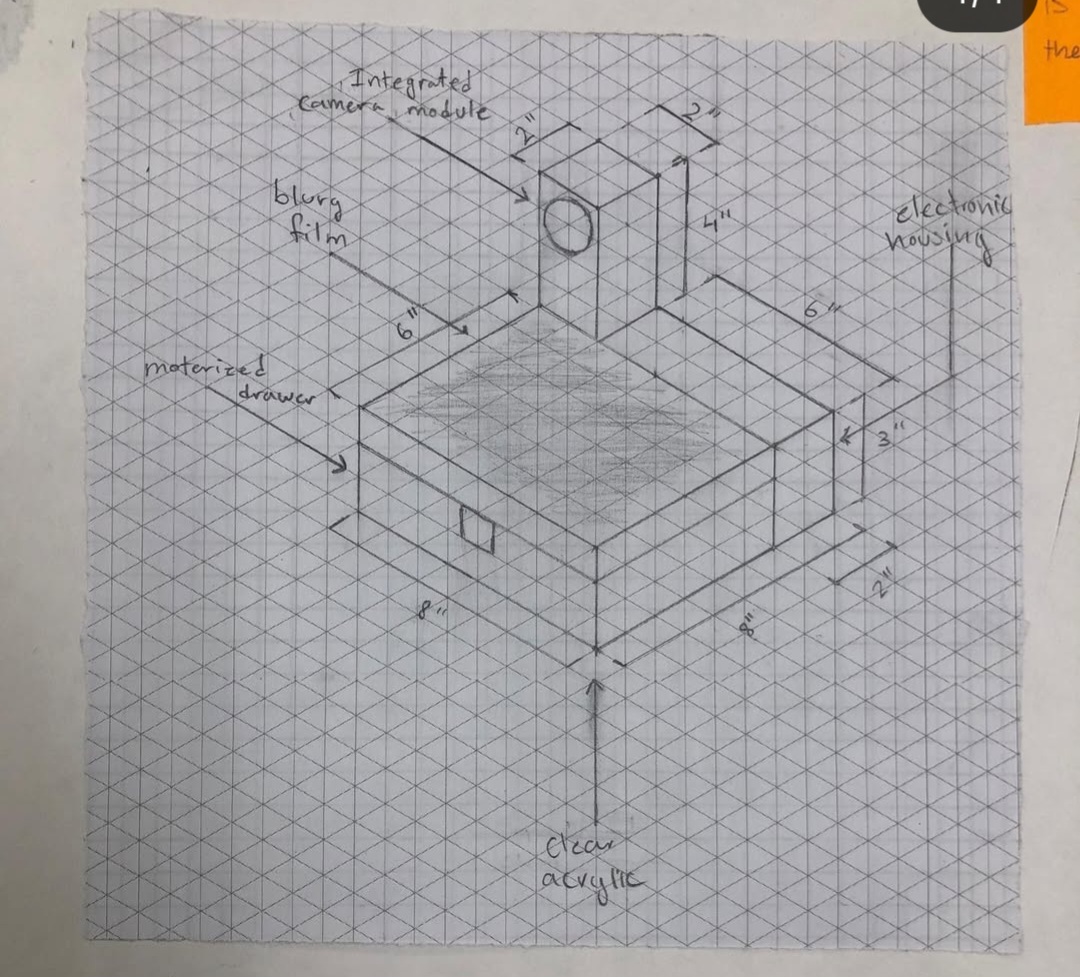 is
the
Integrated
camera module
2"
2"
blurg
film
4"
electronic
housing
6"
6"
moterized
drawer
3"
8"
8"
2"
clear
acrylic